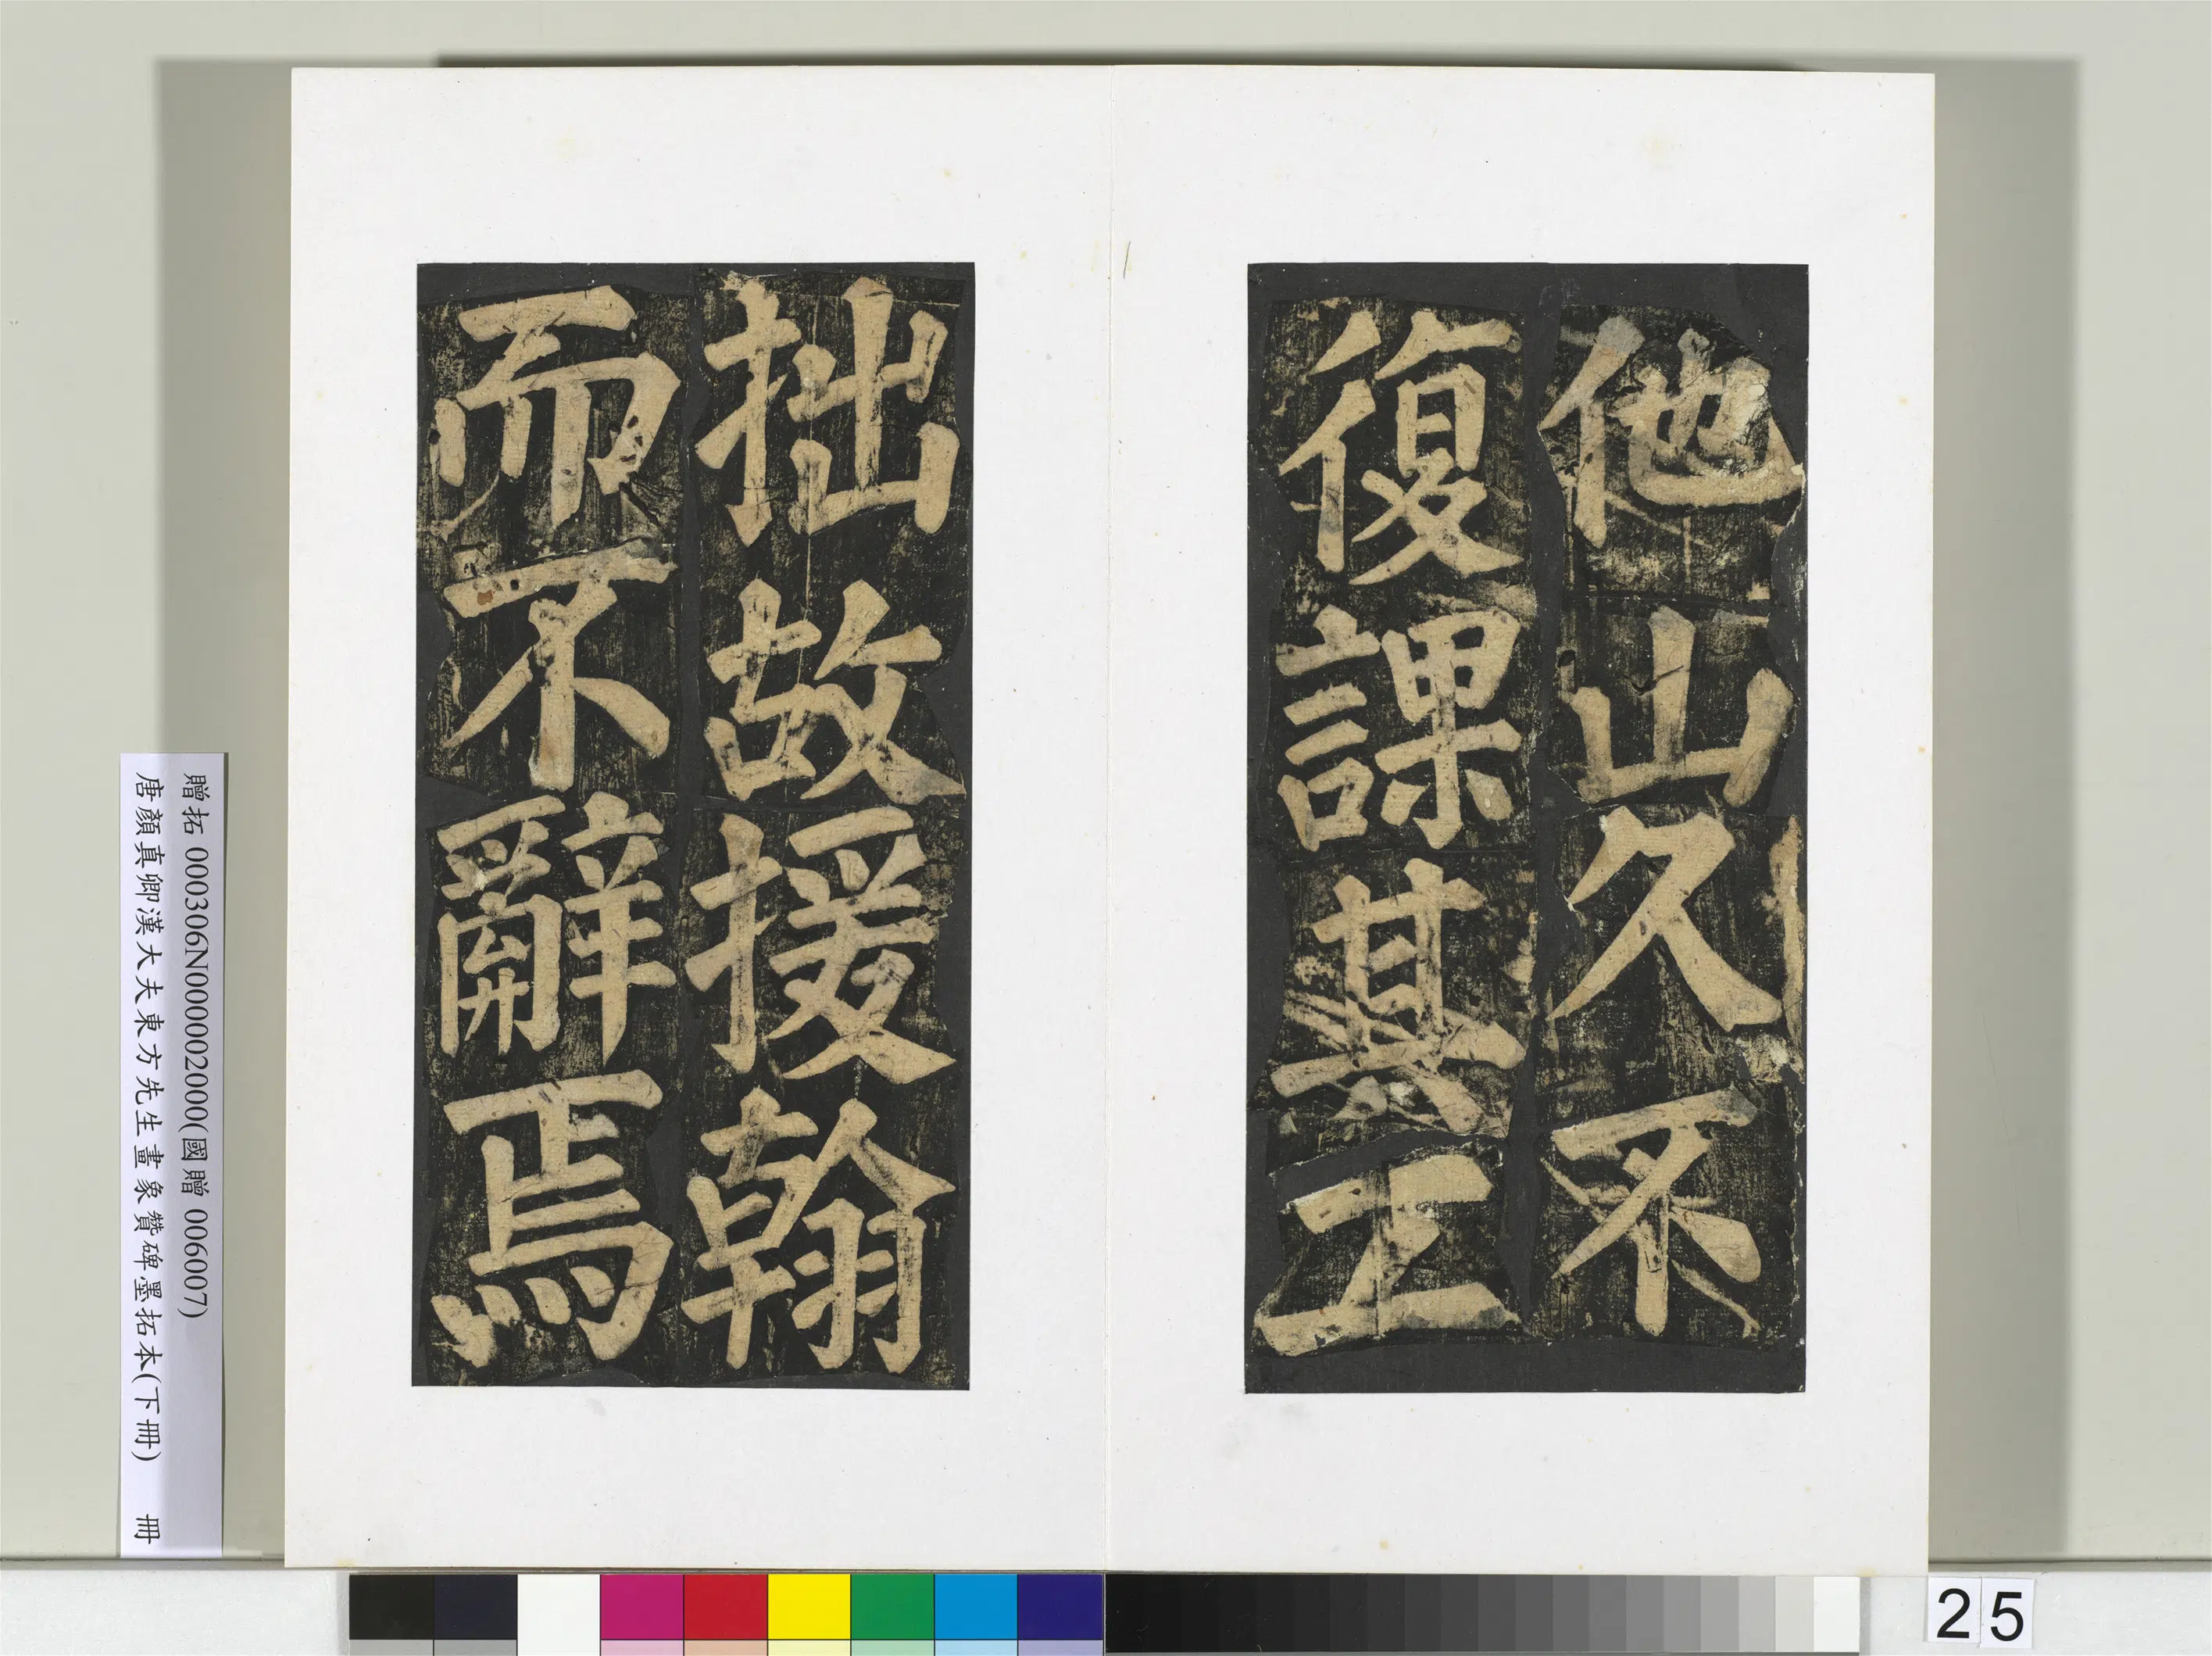 他山久不
復課其工
拙故援翰
而不辭焉
贈拓 000306N000002000(國贈 006007)
唐顏真卿漢大夫東方先生畫象贊碑墨拓本(下冊) 冊
25